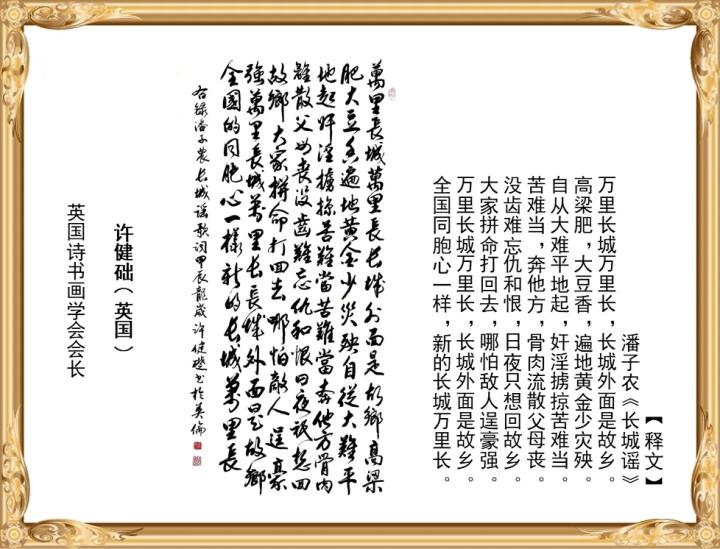 【释文】
潘子农《长城谣》
万里长城万里长，长城外面是故乡。
高梁肥，大豆香，遍地黄金少灾殃。
自从大难平地起，奸淫掳掠苦难当。
苦难当，奔他方，骨肉流散父母丧。
没齿难忘仇和恨，日夜只想回故乡。
大家拼命打回去，哪怕敌人逞豪强。
万里长城万里长，长城外面是故乡。
全国同胞心一样，新的长城万里长。
萬里長城萬里長長城外面是故鄉高梁
肥大豆香遍地黄金少災殃自從大難平
地起奸淫擄掠苦難當苦難當奔他方骨肉
離散父母喪没齒難忘仇和恨日夜祇想回
故鄉大家拼命打回去哪怕敵人逞豪
強萬里長城萬里長長城外面是故鄉
全國的同胞心一樣新的長城萬里長
右録潘子農長城謡歌詞甲辰龍歲许健礎书於英倫
许健础（英国）
英国诗书画学会会长